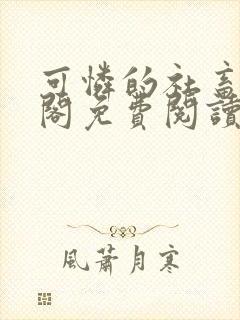 可憐的社畜
閣免費閱讀
風蕭月寒